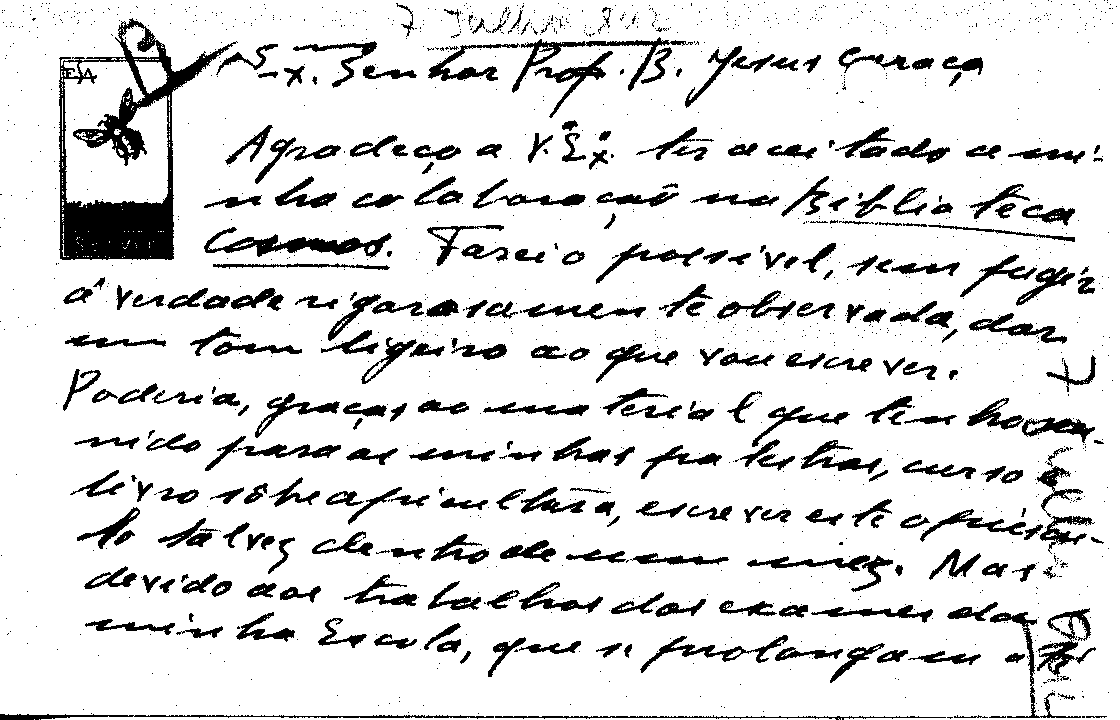 7 Julho
ESA
Ex. Senhor Prof. B. Jesus Caraça
Agradeço a V. Ex. ter aceitado a mi-
nha colaboração na Biblioteca
Cosmos. Farei o possivel, sem fugir
á verdade rigorosamente observada, dar
um tom ligeiro ao que vou escrever.
Poderia, graças ao material que tenho reu-
nido para as minhas palestras, curso e
livro sôbre apicultura, escrever este opuscu-
lo talvez dentro de um mez. Mas
devido aos trabalhos dos exames da
minha Escola, que se prolongam até